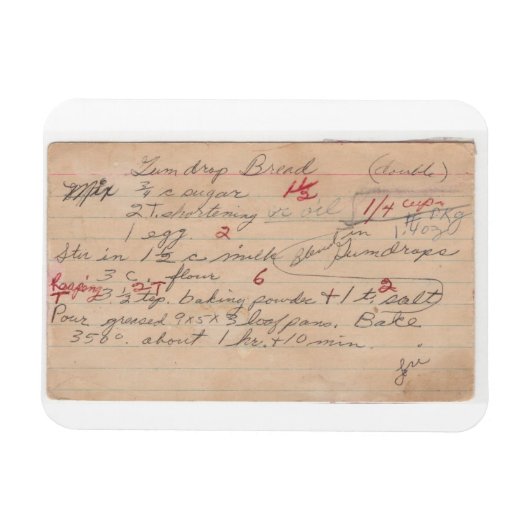 Gumdrop Bread (double)
Mix 3/4 c sugar 1 1/2
2 T. shortening or oil 1/4 cups
1 egg 2 1 PKg
Stir in 1 1/2 c milk Blend in Gumdrops
3 c. flour 6
Rasping T 3 1/2 tsp. baking powder + 1 t. salt 2
Pour greased 9x5x3 loaf pans. Bake
350°. about 1 hr. + 10 min.